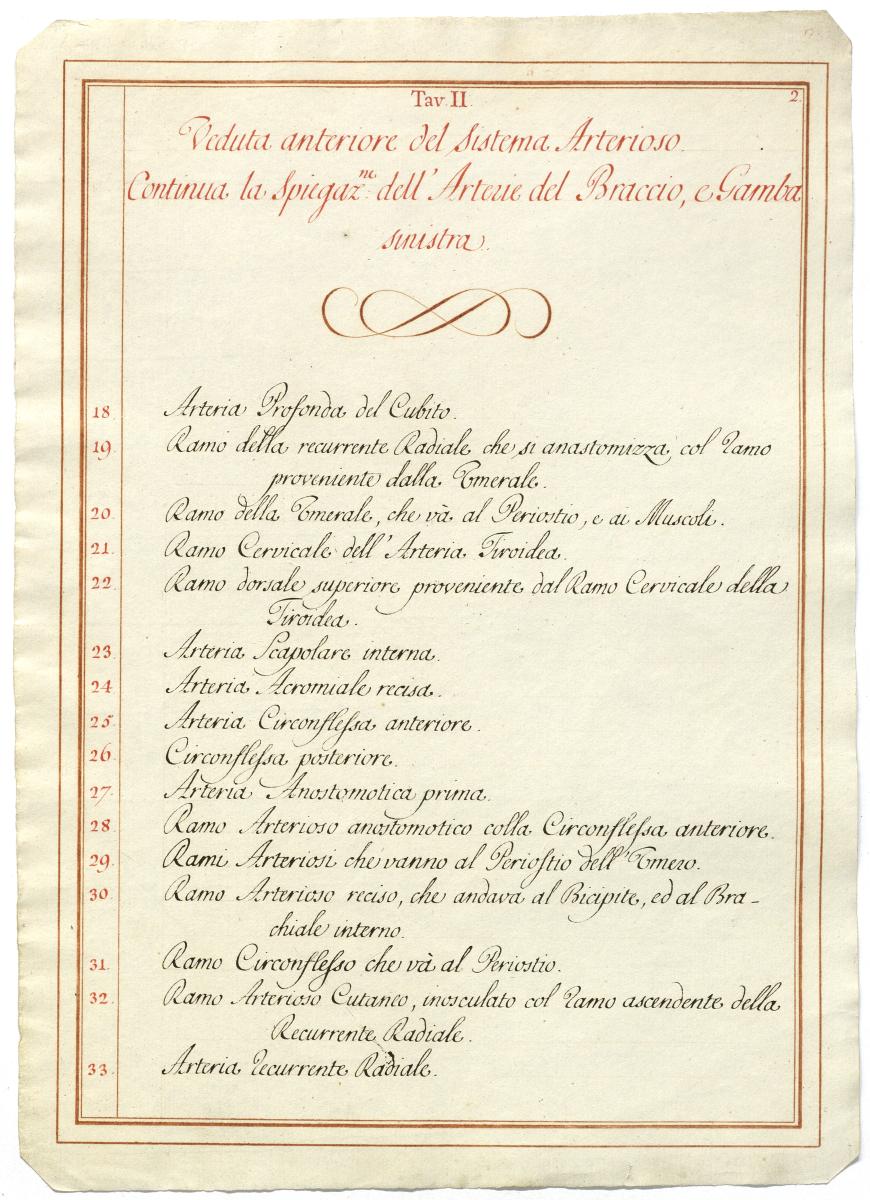 Tav. II. 2.
Veduta anteriore del Sistema Arterioso.
Continua la Spiegaz.ne dell'Arterie del Braccio, e Gamba
sinistra.
18. Arteria Profonda del Cubito.
19. Ramo della recurrente Radiale che si anastomizza col Ramo
proveniente dalla Umerale.
20. Ramo della Umerale, che và al Periostio, e ai Muscoli.
21. Ramo Cervicale dell'Arteria Tiroidea.
22. Ramo dorsale superiore proveniente dal Ramo Cervicale della
Tiroidea.
23. Arteria Scapolare interna.
24. Arteria Acromiale recisa.
25. Arteria Circonflessa anteriore.
26. Circonflessa posteriore.
27. Arteria Anostomotica prima.
28. Ramo Arterioso anostomotico colla Circonflessa anteriore.
29. Rami Arteriosi che vanno al Periostio dell'Umero.
30. Ramo Arterioso reciso, che andava al Bicipite, ed al Bra-
chiale interno.
31. Ramo Circonflesso che và al Periostio.
32. Ramo Arterioso Cutaneo, inosculato col Ramo ascendente della
Recurrente Radiale.
33. Arteria Recurrente Radiale.